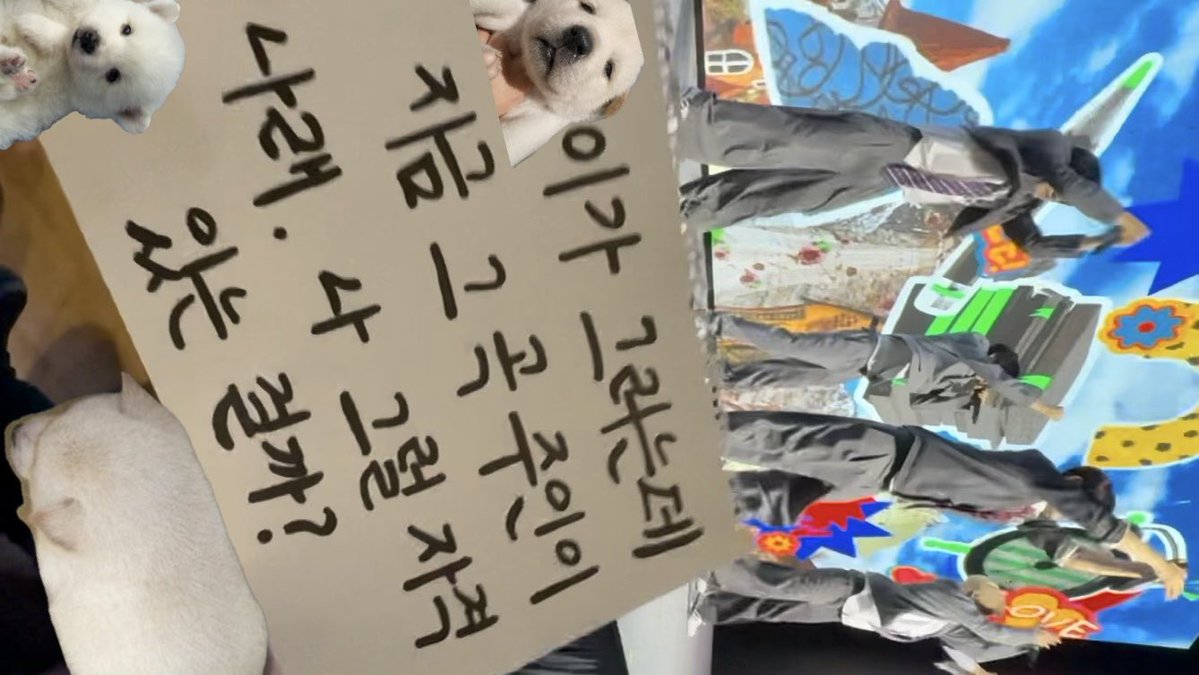 이가 그랬는데
지금 그 곡 주인이
나래. 나 그럴 자격
있는 걸까?
LOVE